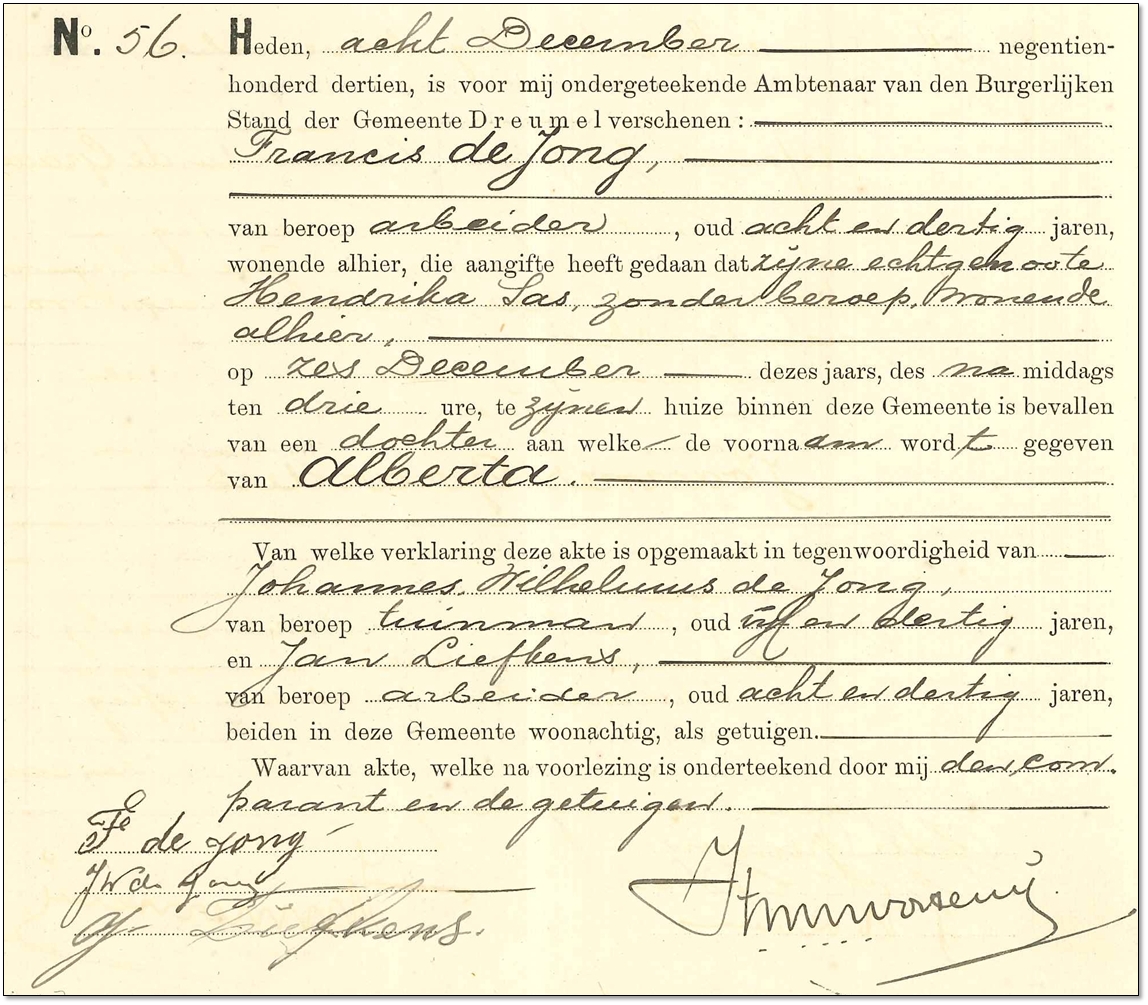 No. 56. Heden, acht December negentien-
honderd dertien, is voor mij ondergeteekende Ambtenaar van den Burgerlijken
Stand der Gemeente Dreumel verschenen :
Francis de Jong,
van beroep arbeider , oud acht en dertig jaren,
wonende alhier, die aangifte heeft gedaan dat zijne echtgenoote
Hendrika Sas, zonder beroep, wonende
alhier,
op zes December dezes jaars, des na middags
ten drie ure, te zijnen huize binnen deze Gemeente is bevallen
van een dochter aan welke de voornaam wordt gegeven
van Alberta.
Van welke verklaring deze akte is opgemaakt in tegenwoordigheid van
Johannes Wilhelmus de Jong,
van beroep tuinman , oud vijf en dertig jaren,
en Jan Liefkens,
van beroep arbeider , oud acht en dertig jaren,
beiden in deze Gemeente woonachtig, als getuigen.
Waarvan akte, welke na voorlezing is onderteekend door mij den com.
parant en de getuigen.
F de jong
JW de Jong
Liefkens.